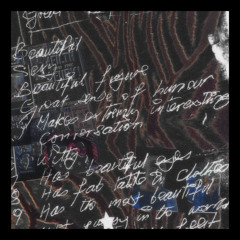 Beautiful
Sexy
Beautiful figure
Great sense of humour
Makes extremely interesting
conversation
Witty
Has beautiful eyes
Has fab taste in clothes
Has the most beautiful
in the world